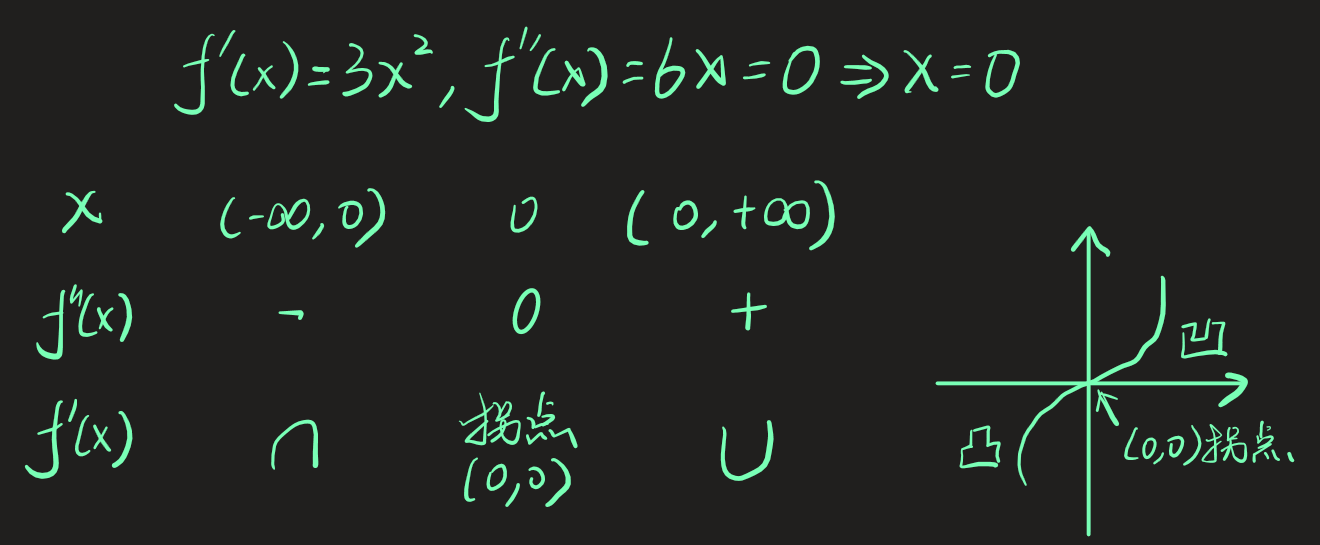 f'(x)=3x², f''(x)=6x=0⇒x=0
x (-∞,0) 0 (0,+∞)
f''(x) - 0 +
f'(x) ∩ 拐点 (0,0) ∪
凹
凸
(0,0)拐点